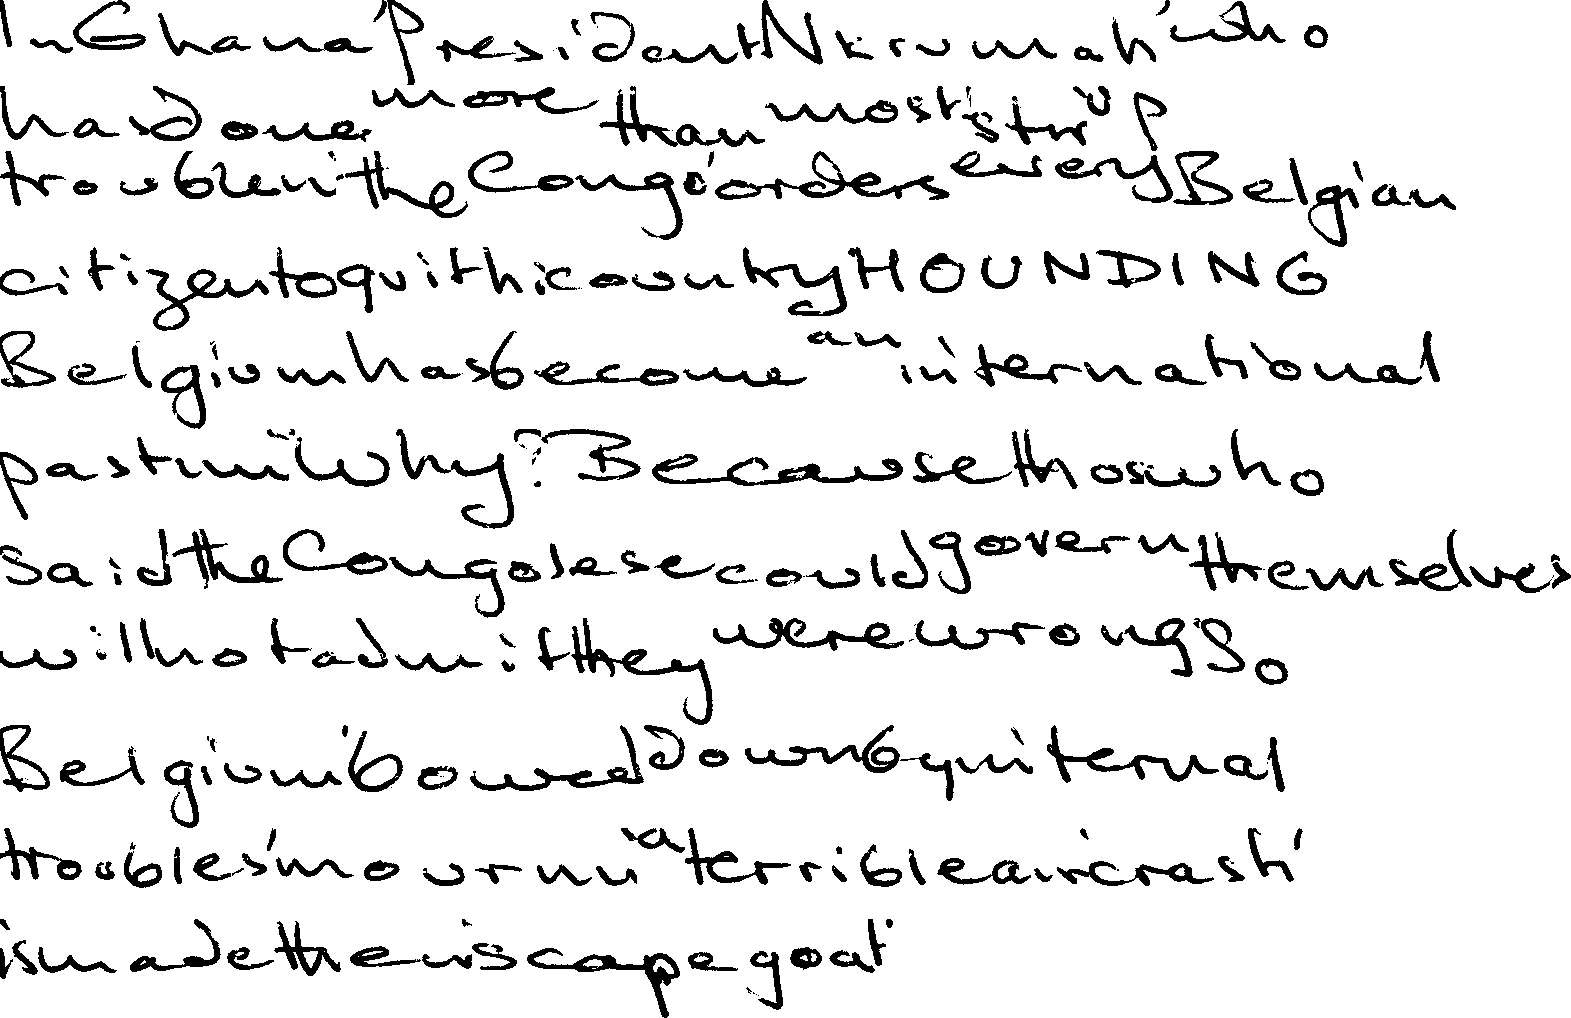 In Ghana President Nkrumah, who
has done more than most to stir up
trouble in the Congo, orders every Belgian
citizen to quit his country. HOUNDING
Belgium has become an international
pastime. Why? Because those who
said the Congolese could govern themselves
will not admit they were wrong. So
Belgium, bowed down by internal
troubles, mourning a terrible air crash,
is made their scapegoat.